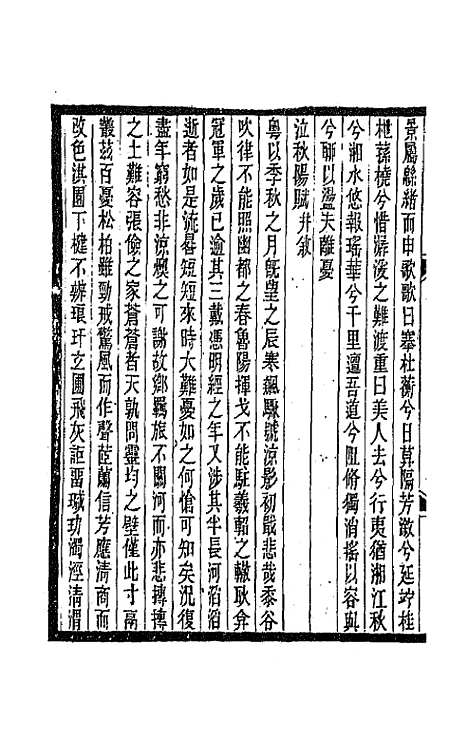 景鳳緜緒而申歌歌曰搴杜蘅兮日莫隔芳澂兮延竚桂
櫂蓀橈兮惜潺湲之難渡重曰美人去兮行夷猶湘江秋
兮湘水悠報瑤華兮千里邅吾道兮阻脩獨消搖以容與
兮聊以盪夫離憂
泣秋陽賦并敘
粵以季秋之月旣望之辰寒飆驟號涼影初嚴悲哉黍谷
吹律不能照幽都之春魯陽揮戈不能駐羲輈之轍耿弇
冠軍之歲已逾其三戴憑明經之年又涉其半長河滔滔
逝者如是流晷短短來時大難憂如之何愴可知矣況復
盡年窮愁非涼襯之可謝故鄉羈旅不關河而亦悲摶摶
之土難容張儉之家蒼蒼者天孰問靈均之壁僅此寸鬲
叢茲百憂松柏雖勁戒驚風而作聲茝蘭信芳應清商而
改色淇園下楗不辦琅玕玄圃飛灰詎雷珷玏濁涇清渭